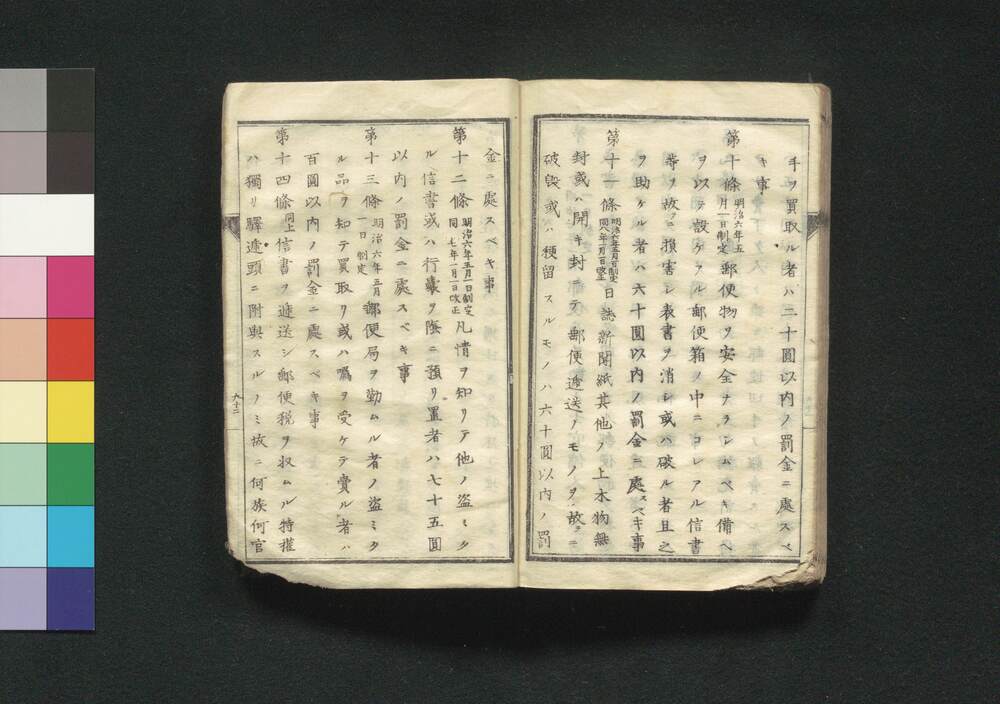 手ヲ買取ル者ハ三十圓以内ノ罰金ニ處スベ
キ事
第十條明治六年五月一日制定郵便物ヲ安全ナラシムベキ備ヘ
ヲ以テ設ケアル郵便箱ノ中ニコレアル信書
等ヲ故ラニ損害シ表書ヲ消シ或ハ破ル者且之
ヲ助ケル者ハ六十圓以内ノ罰金ニ處スベキ事
第十一條明治六年五月一日制定同八年一月一日改正日誌新聞紙其他ノ上木物無
封或ハ開キ封ニテ郵便遞送ノモノヲ故ラニ
破毀或ハ稽留スルモノハ六十圓以内ノ罰
金ニ處スベキ事
第十二條明治六年五月一日制定同七年一月一日改正凡情ヲ知リテ他ノ盗ミタ
ル信書或ハ行嚢ヲ陰ニ預リ置者ハ七十五圓
以内ノ罰金ニ處スベキ事
第十三條明治六年五月一日制定郵便局ヲ勤ムル者ノ盗ミタ
ル品ヲ知テ買取リ或ハ囑ヲ受ケテ賣ル者ハ
百圓以内ノ罰金ニ處スベキ事
第十四條同上信書ヲ遞送シ郵便税ヲ収ムル特權
ハ獨リ驛遞頭ニ附與スルノミ故ニ何族何官
九十二